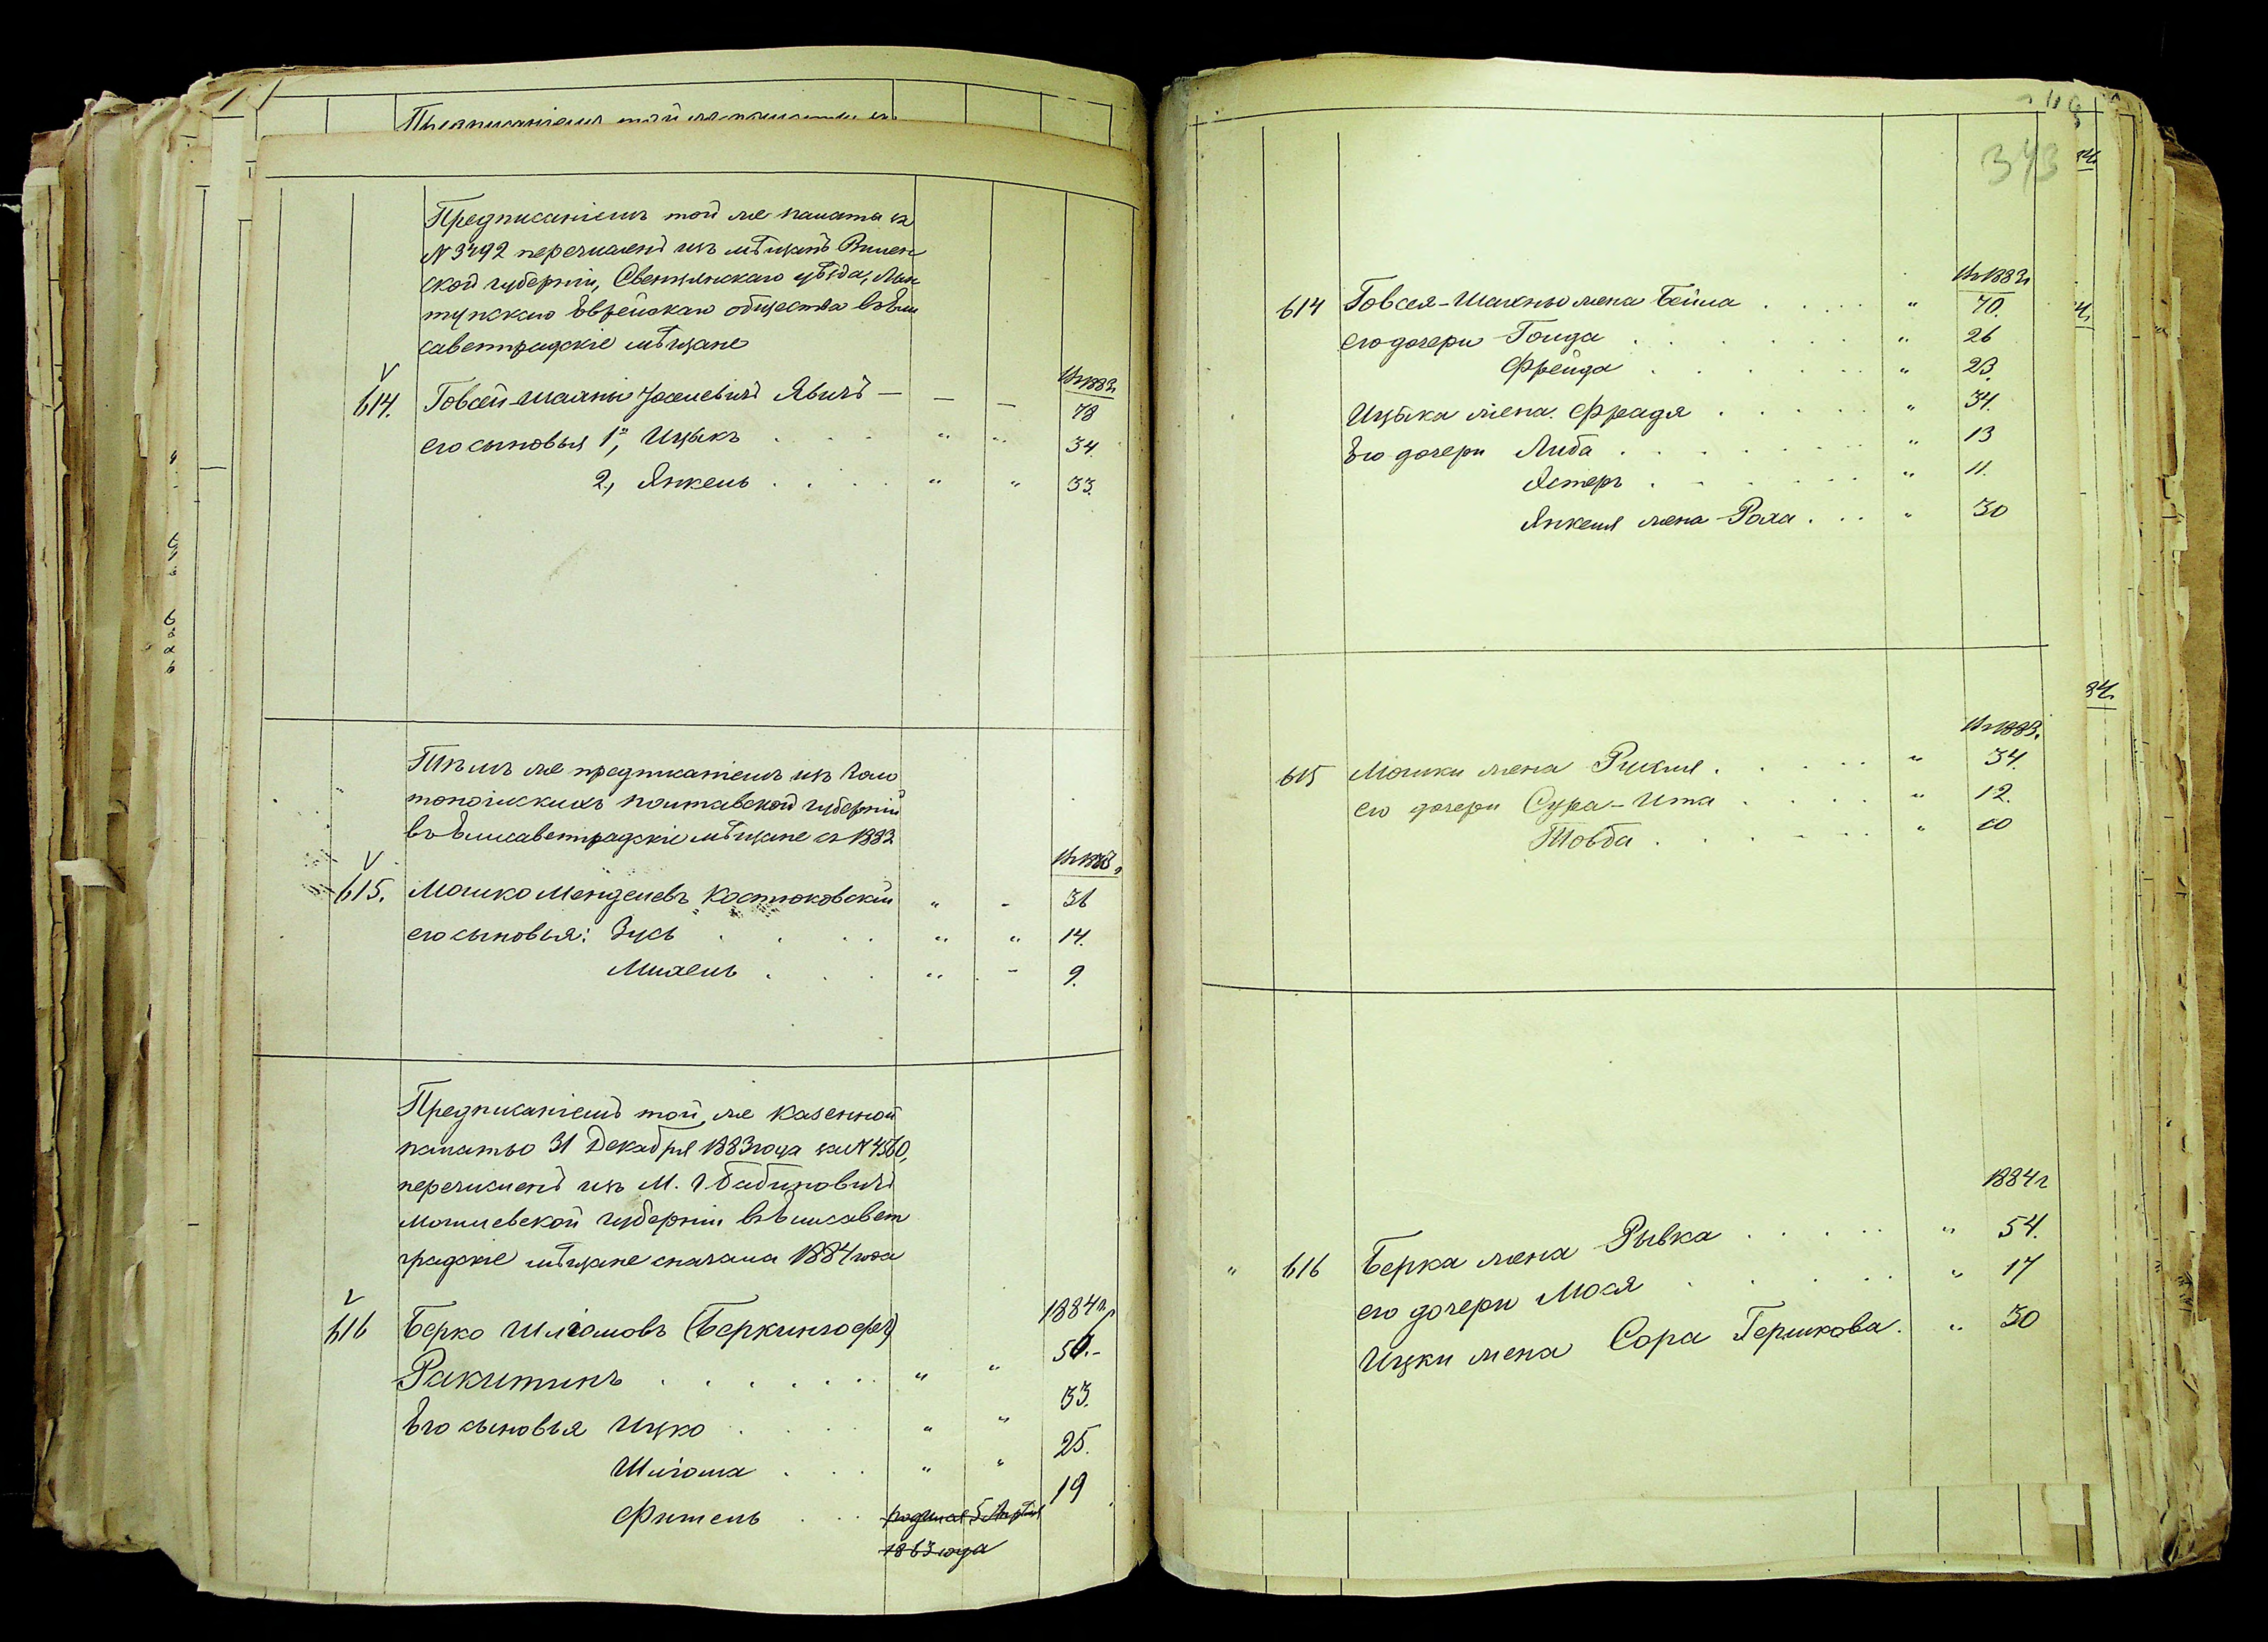 Предписаніемъ той же палаты за
№ 3492 перечисленъ изъ мѣщанъ Вилен
ской губерніи, Свенцянскаго уѣзда, Лын
тупскаго Еврейскаго общества въ Ели
саветградскіе мѣщане
614. Говсей-Шахны Іоселевичъ Явичъ — — —
Въ 1883г
78
его сыновья 1, Ицыкъ . . . " " 34.
2, Янкель . . . . " " 33.
Тѣмъ же предписаніемъ изъ Золо
тоношскихъ Полтавской губерніи
въ Елисаветградскіе мѣщане съ 1883
Въ 1883г
615. Мошко Менделевъ Костюковскій " - 36
его сыновья: Зусь . . . . " " 14.
Михель . . . " - 9.
Предписаніемъ той же казенной
палаты 31 Декабря 1883 года за № 4560,
перечисленъ изъ М. г. Бабиновичъ
Могилевской губерніи въ Елисавет
градскіе мѣщане сначала 1884 года
1884 г
616 Берко Шліомовъ (Беркингофъ)
50.-
Ракитинъ . . . . . . . " "
Его сыновья Ицко . . . . " " 33.
Шліома . . . " " 25.
Фитель . . 19
родился 5 Апрѣля
1863 года
343
Въ 1883г
614 Говсея-Шахны жена Бейла . . . . " 70.
его дочери Голда . . . . . . " 26
Фрейда . . . . . . " 23.
Ицыка жена Фрадя . . . . . " 34.
Его дочери Либа . . . . . . " 13
Эстеръ . . . . . . " 11.
Янкеля жена Роха . . . " 30
Въ 1883.
615 Мошки жена Рухля . . . . . " 34.
его дочери Сура-Ита . . . . " 12.
Товба . . . . . . " 10
1884 г
" 616 Берка жена Рывка . . . . . " 54.
его дочери Мося . . . . . " 17
Ицки жена Сора Гершкова. " 30